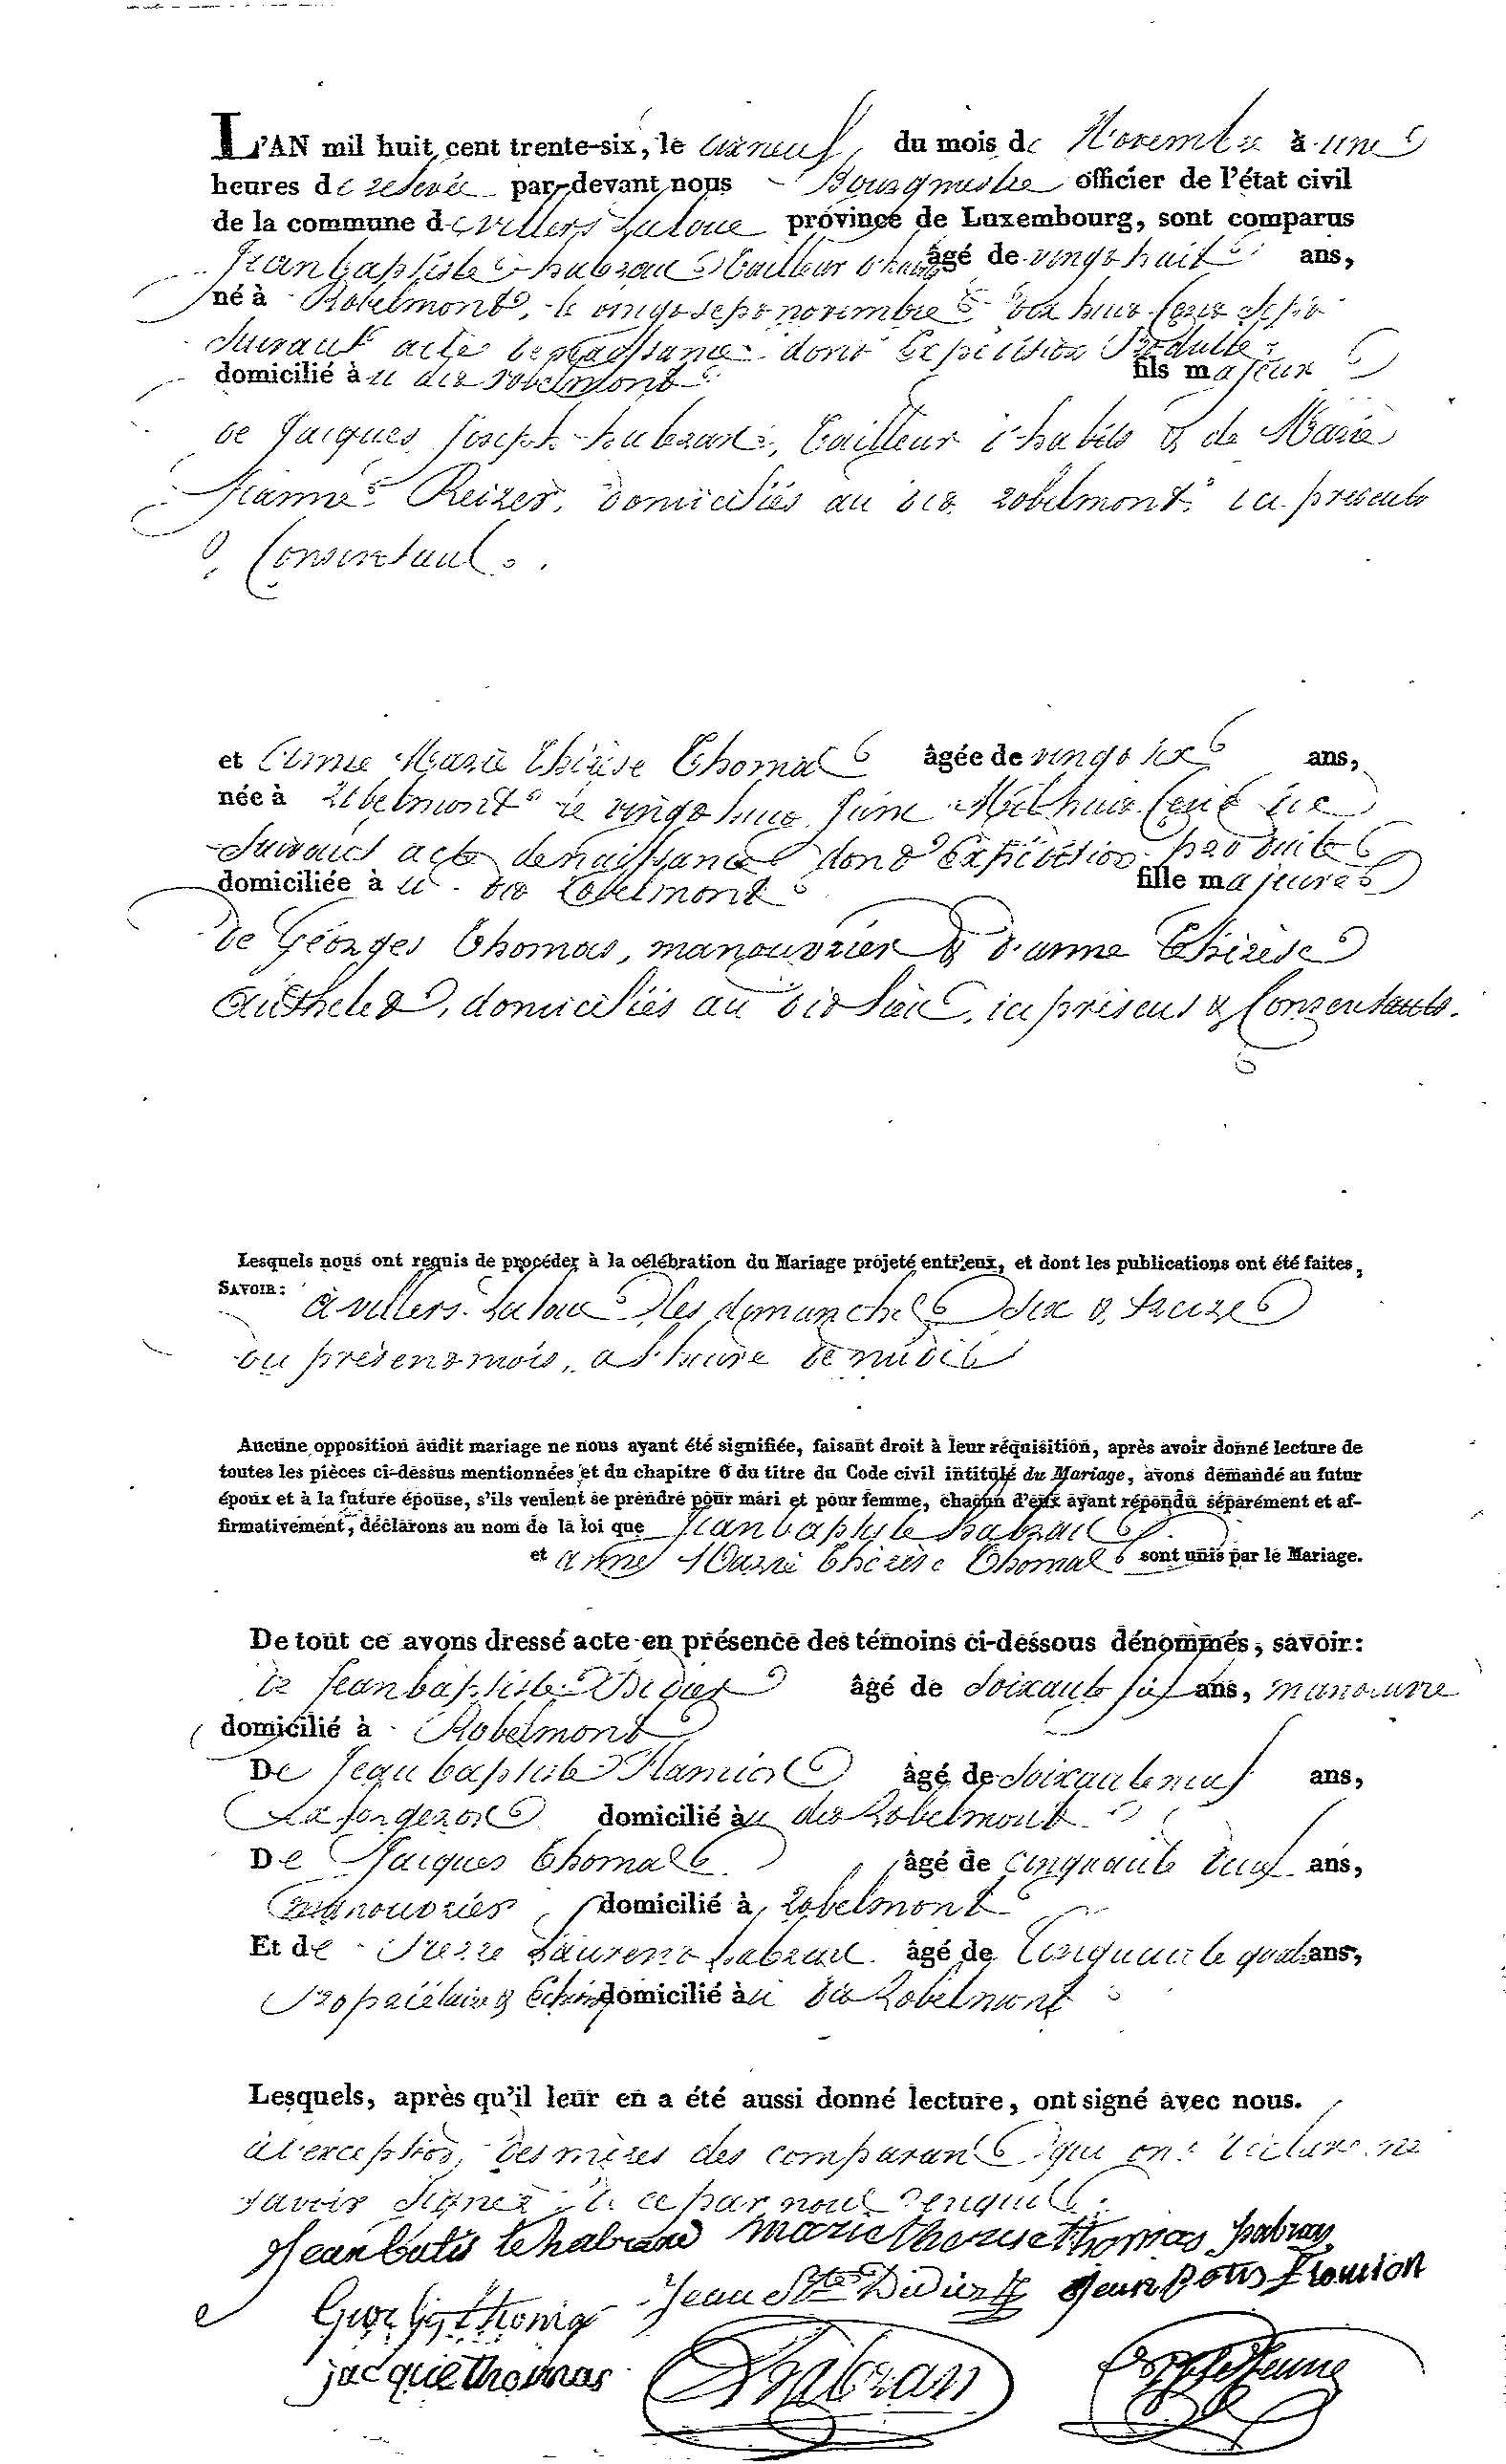 L'AN mil huit cent trente-six, le dixneuf du mois de Novembre à une
heures de relevée par-devant nous Bourgmestre officier de l'état civil
de la commune de villers Laloue province de Luxembourg, sont comparus
Jean baptiste habran tailleur d'habits âgé de vingt huit ans,
né à Robelmont, le vingt sept novembre dix huit cent sept
suivant acte de naissance dont Expédition Produite
domicilié à u dit robelmont fils majeur
de Jacques Joseph habran, tailleur d'habits & de Marie
Jeanne Reizer, domiciliés au dit robelmont, ici présents
& Consentant.
et Anne Marie thérèse thomas âgée de vingt six ans,
née à Robelmont le vingt huit Juin Mil huit Cent dix
suivant acte de naissance dont Expédition produite
domiciliée à u dit Robelmont fille majeure
de Géorges thomas, manouvrier & d'anne thérèse
authelet, domiciliés au dit lieu, ici présens & Consentants.
Lesquels nous ont requis de procéder à la célébration du Mariage projeté entr'eux, et dont les publications ont été faites,
SAVOIR: à villers Laloue les dimanches six & treize
du présent mois, a l'heure de midi
Aucune opposition audit mariage ne nous ayant été signifiée, faisant droit à leur réquisition, après avoir donné lecture de
toutes les pièces ci-dessus mentionnées et du chapitre 6 du titre du Code civil intitulé du Mariage, avons demandé au futur
époux et à la future épouse, s'ils veulent se prendre pour mari et pour femme, chacun d'eux ayant répondu séparément et af-
firmativement, déclarons au nom de la loi que Jean baptiste habran
et anne Marie thérèse thomas sont unis par le Mariage.
De tout ce avons dressé acte en présence des témoins ci-dessous dénommés, savoir:
de Jean baptiste Didier âgé de soixante six ans, manœuvre
domicilié à Robelmont
De Jean baptiste âgé de soixante neuf ans,
Ex forgeron domicilié àu dit Robelmont
De Jacques thomas âgé de cinquante deux ans,
manouvrier domicilié à robelmont
Et de Pierre Laurent habran âgé de Cinquante quatre ans,
Propriétaire & Echevin domicilié àu dit Robelmont
Lesquels, après qu'il leur en a été aussi donné lecture, ont signé avec nous.
à l'exception des mères des comparants qui ont déclaré ne
savoir signer de ce par nous enquis.
Jean batis te habran marie therese thomas habran
Jean Bte Didier Jean batis
jacque thomas Habran